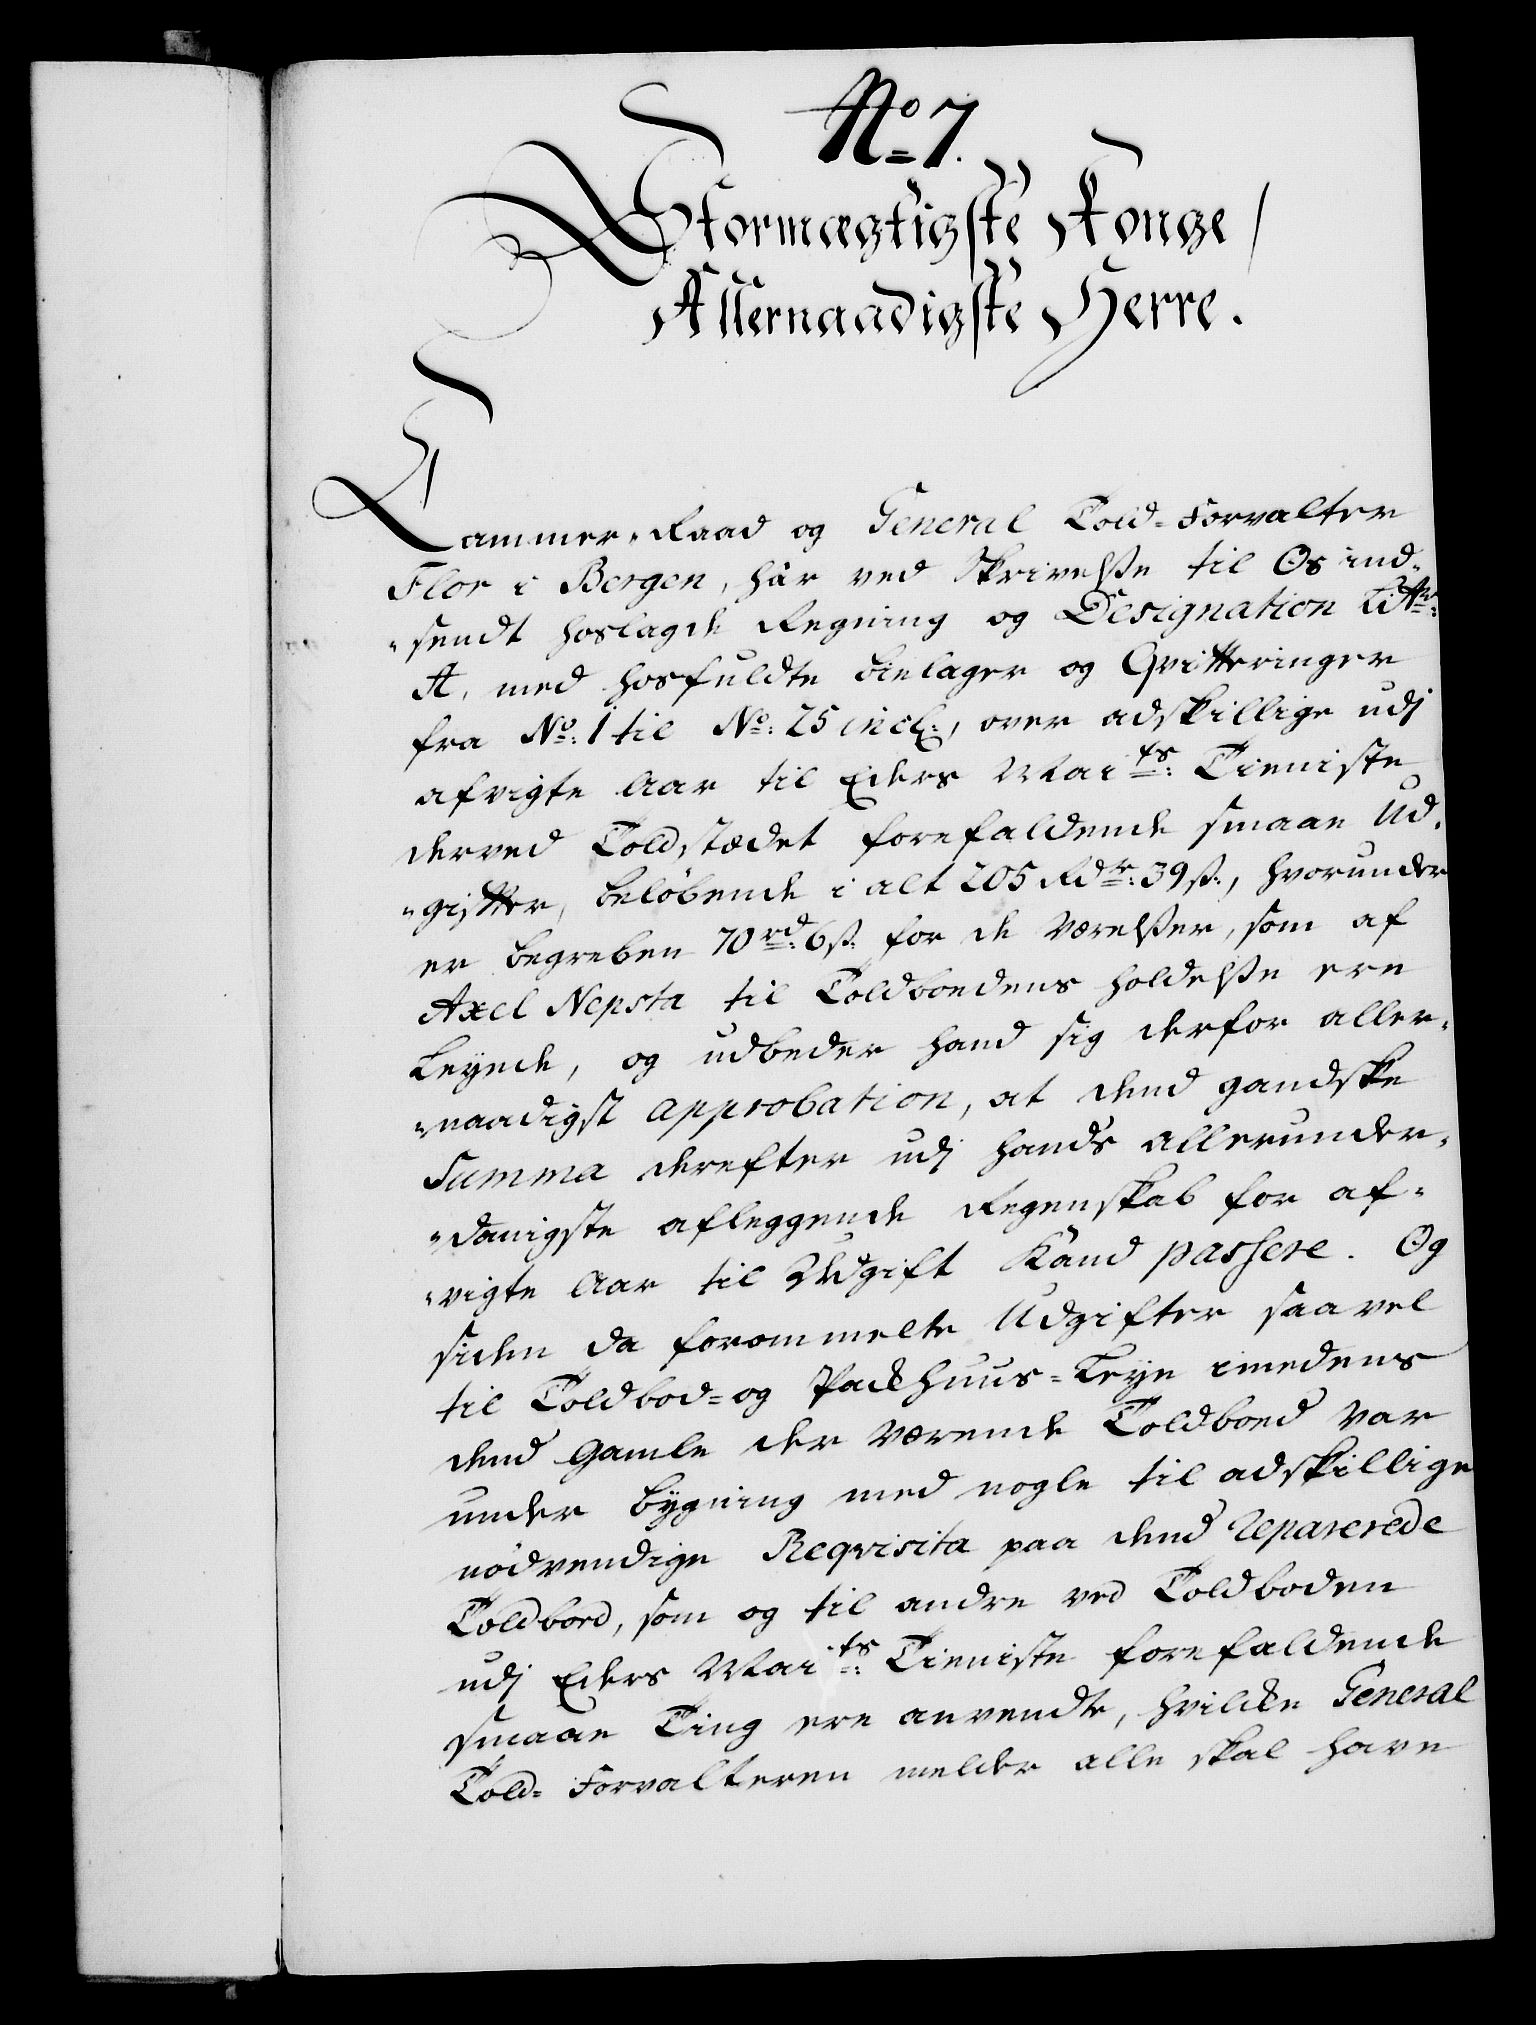 No 7.
Stormægtigste Konge /
Allernaadigste Herre.
Cammer-Raad og General Told-Forvalter
Flor i Bergen, har ved Skrivelsse til Os ind-
sendt hoslagde Regning og Designation Littr:
A, med hosfuldte bielager og Qvitteringer
fra No: 1 til No: 25 incl:, over adskillige udj
afvigte Aar til Eders Maits: Tieniste
derved Toldstædet forefaldende smaae Ud-
gifter, beløbende i alt 205 Rdr: 39 s:, hvorunder
er begreben 70 rd: 6 s: for de Værelsser, som af
Axel Nepsta til Toldboedens holdelsse ere
Leyede, og udbeder hand sig derfor aller-
naadigst approbation, at dend gandske
Summa derefter udj hands allerunder-
danigste afleggende Regenskab for af-
vigte Aar til Udgift kand passere. Og
siden da forommelte Udgifter saavel
til Toldbod- og Pakhuus-Leye imedens
dend Gamle der værende Toldboed var
under bygning med nogle til adskillige
nødvendige Reqvisita paa dend reparerede
Toldboed, som og til andre ved Toldboden
udj Eders Maits: Tieniste forefaldende
smaae Ting ere anvendte, hvilken General
Told-Forvalteren melder alle skal have